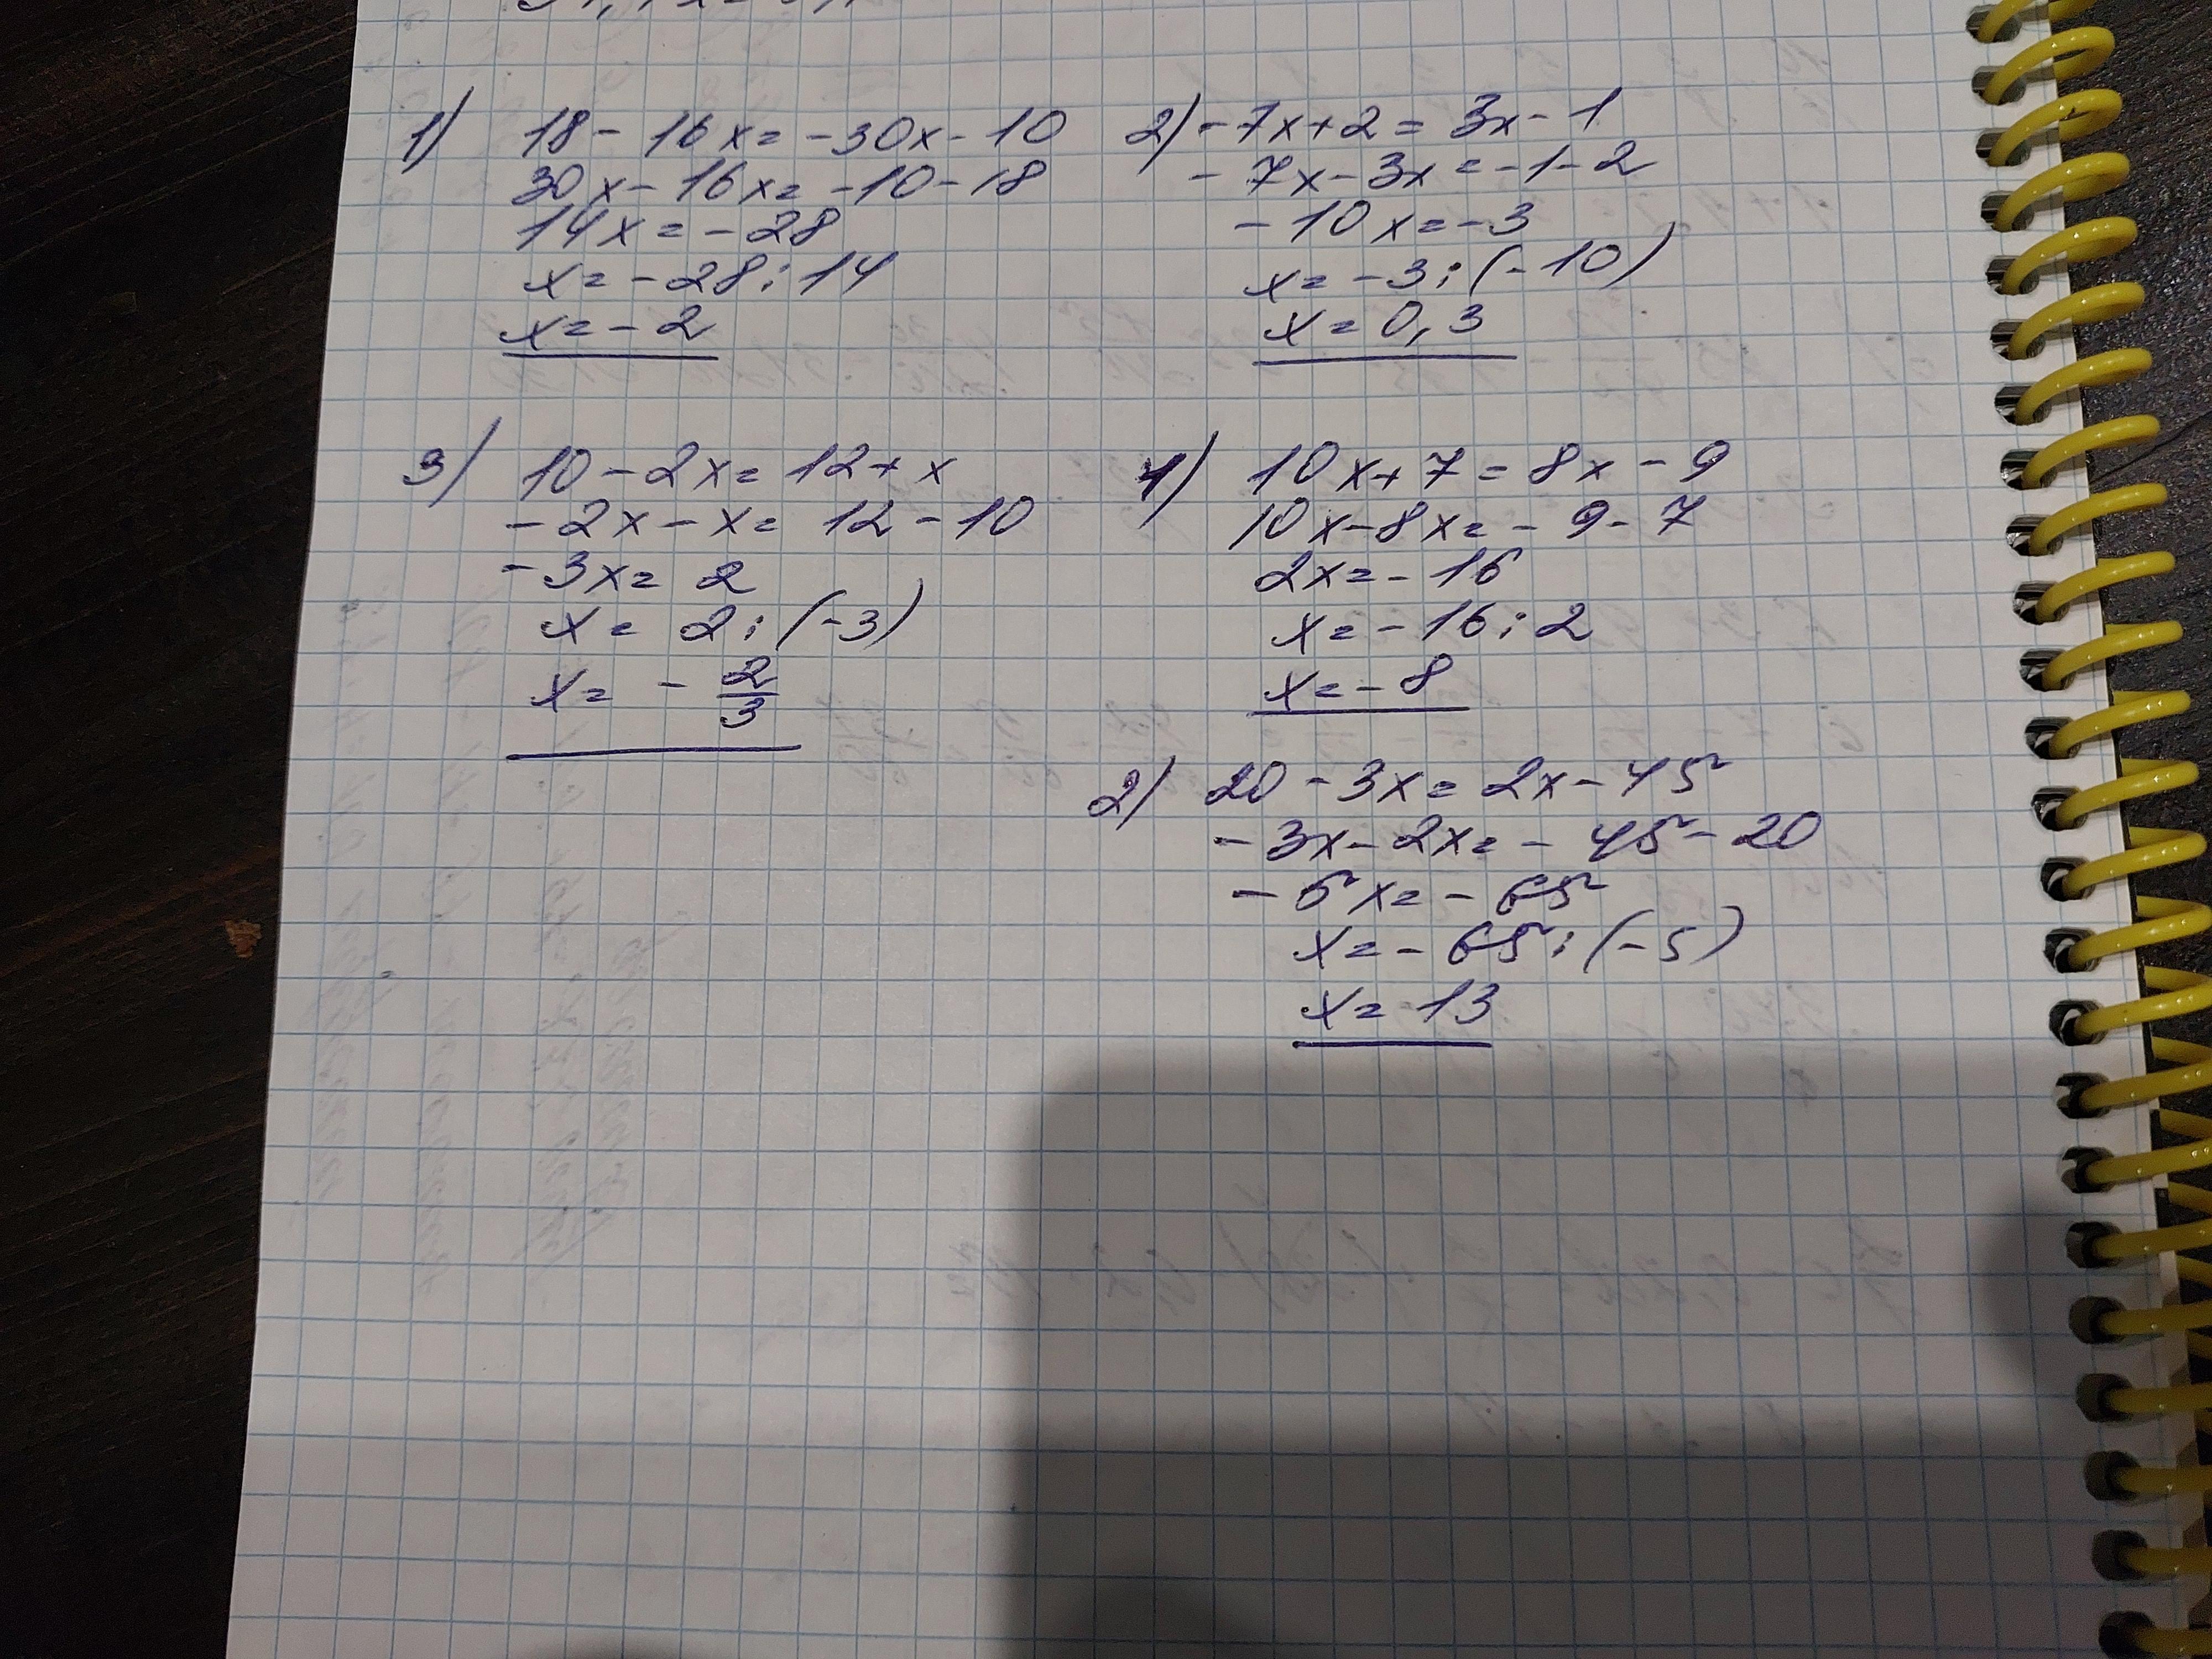 1) 18 - 16x = -30x - 10
30x - 16x = -10 - 18
14x = -28
x = -28 : 14
x = -2
2) -7x + 2 = 3x - 1
-7x - 3x = -1 - 2
-10x = -3
x = -3 : (-10)
x = 0,3
3) 10 - 2x = 12 + x
-2x - x = 12 - 10
-3x = 2
x = 2 : (-3)
x = - 2/3
1) 10x + 7 = 8x - 9
10x - 8x = -9 - 7
2x = -16
x = -16 : 2
x = -8
2) 20 - 3x = 2x - 45
-3x - 2x = -45 - 20
-5x = -65
x = -65 : (-5)
x = 13